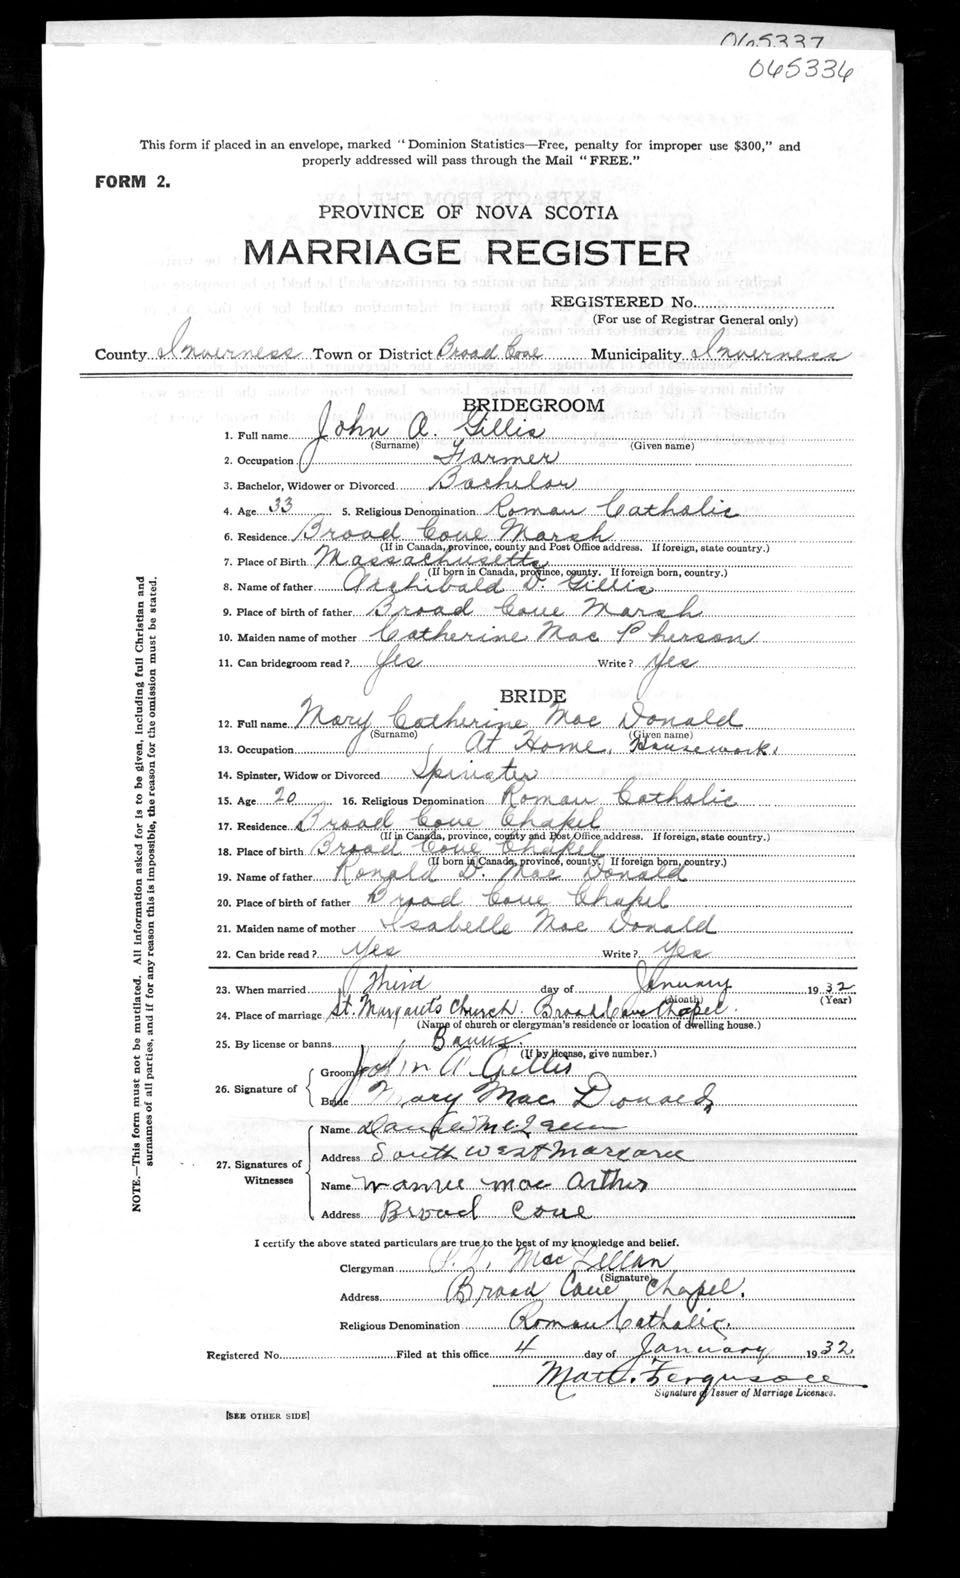 065337
065336
This form if placed in an envelope, marked "Dominion Statistics—Free, penalty for improper use $300," and
properly addressed will pass through the Mail "FREE."
FORM 2.
PROVINCE OF NOVA SCOTIA
MARRIAGE REGISTER
REGISTERED No.
(For use of Registrar General only)
County Inverness Town or District Broad Cove Municipality Inverness
BRIDEGROOM
1. Full name John A. Gillis
(Surname) (Given name)
2. Occupation Farmer
3. Bachelor, Widower or Divorced Bachelor
4. Age 33 5. Religious Denomination Roman Catholic
6. Residence Broad Cove Marsh
(If in Canada, province, county and Post Office address. If foreign, state country.)
7. Place of Birth Massachusetts
(If born in Canada, province, county. If foreign born, country.)
8. Name of father Archibald D. Gillis
9. Place of birth of father Broad Cove Marsh
10. Maiden name of mother Catherine Mac Pherson
11. Can bridegroom read? Yes Write? Yes
BRIDE
12. Full name Mary Catherine Mac Donald
(Surname) (Given name)
13. Occupation At Home. Housework.
14. Spinster, Widow or Divorced Spinster
15. Age 20 16. Religious Denomination Roman Catholic
17. Residence Broad Cove Chapel
(If in Canada, province, county and Post Office address. If foreign, state country.)
18. Place of birth Broad Cove Chapel
(If born in Canada, province, county. If foreign born, country.)
19. Name of father Ronald D. Mac Donald
20. Place of birth of father Broad Cove Chapel
21. Maiden name of mother Isabelle Mac Donald
22. Can bride read? Yes Write? Yes
23. When married Third day of January 1932
(Month) (Year)
24. Place of marriage St. Margaret's Church. Broad Cove Chapel.
(Name of church or clergyman's residence or location of dwelling house.)
25. By license or banns Banns.
(If by license, give number.)
26. Signature of
Groom John A Gillis
Bride Mary Mac Donald
27. Signatures of Witnesses
Name
Address South West Margaree
Name Mac Arthur
Address Broad Cove
I certify the above stated particulars are true to the best of my knowledge and belief.
Clergyman Mac Lellan
(Signature)
Address Broad Cove Chapel.
Religious Denomination Roman Catholic.
Registered No. Filed at this office 4 day of January 1932
Matt. Ferguson
Signature of Issuer of Marriage Licenses.
[SEE OTHER SIDE]
NOTE.—This form must not be mutilated. All information asked for is to be given, including full Christian and
surnames of all parties, and if for any reason this is impossible, the reason for the omission must be stated.